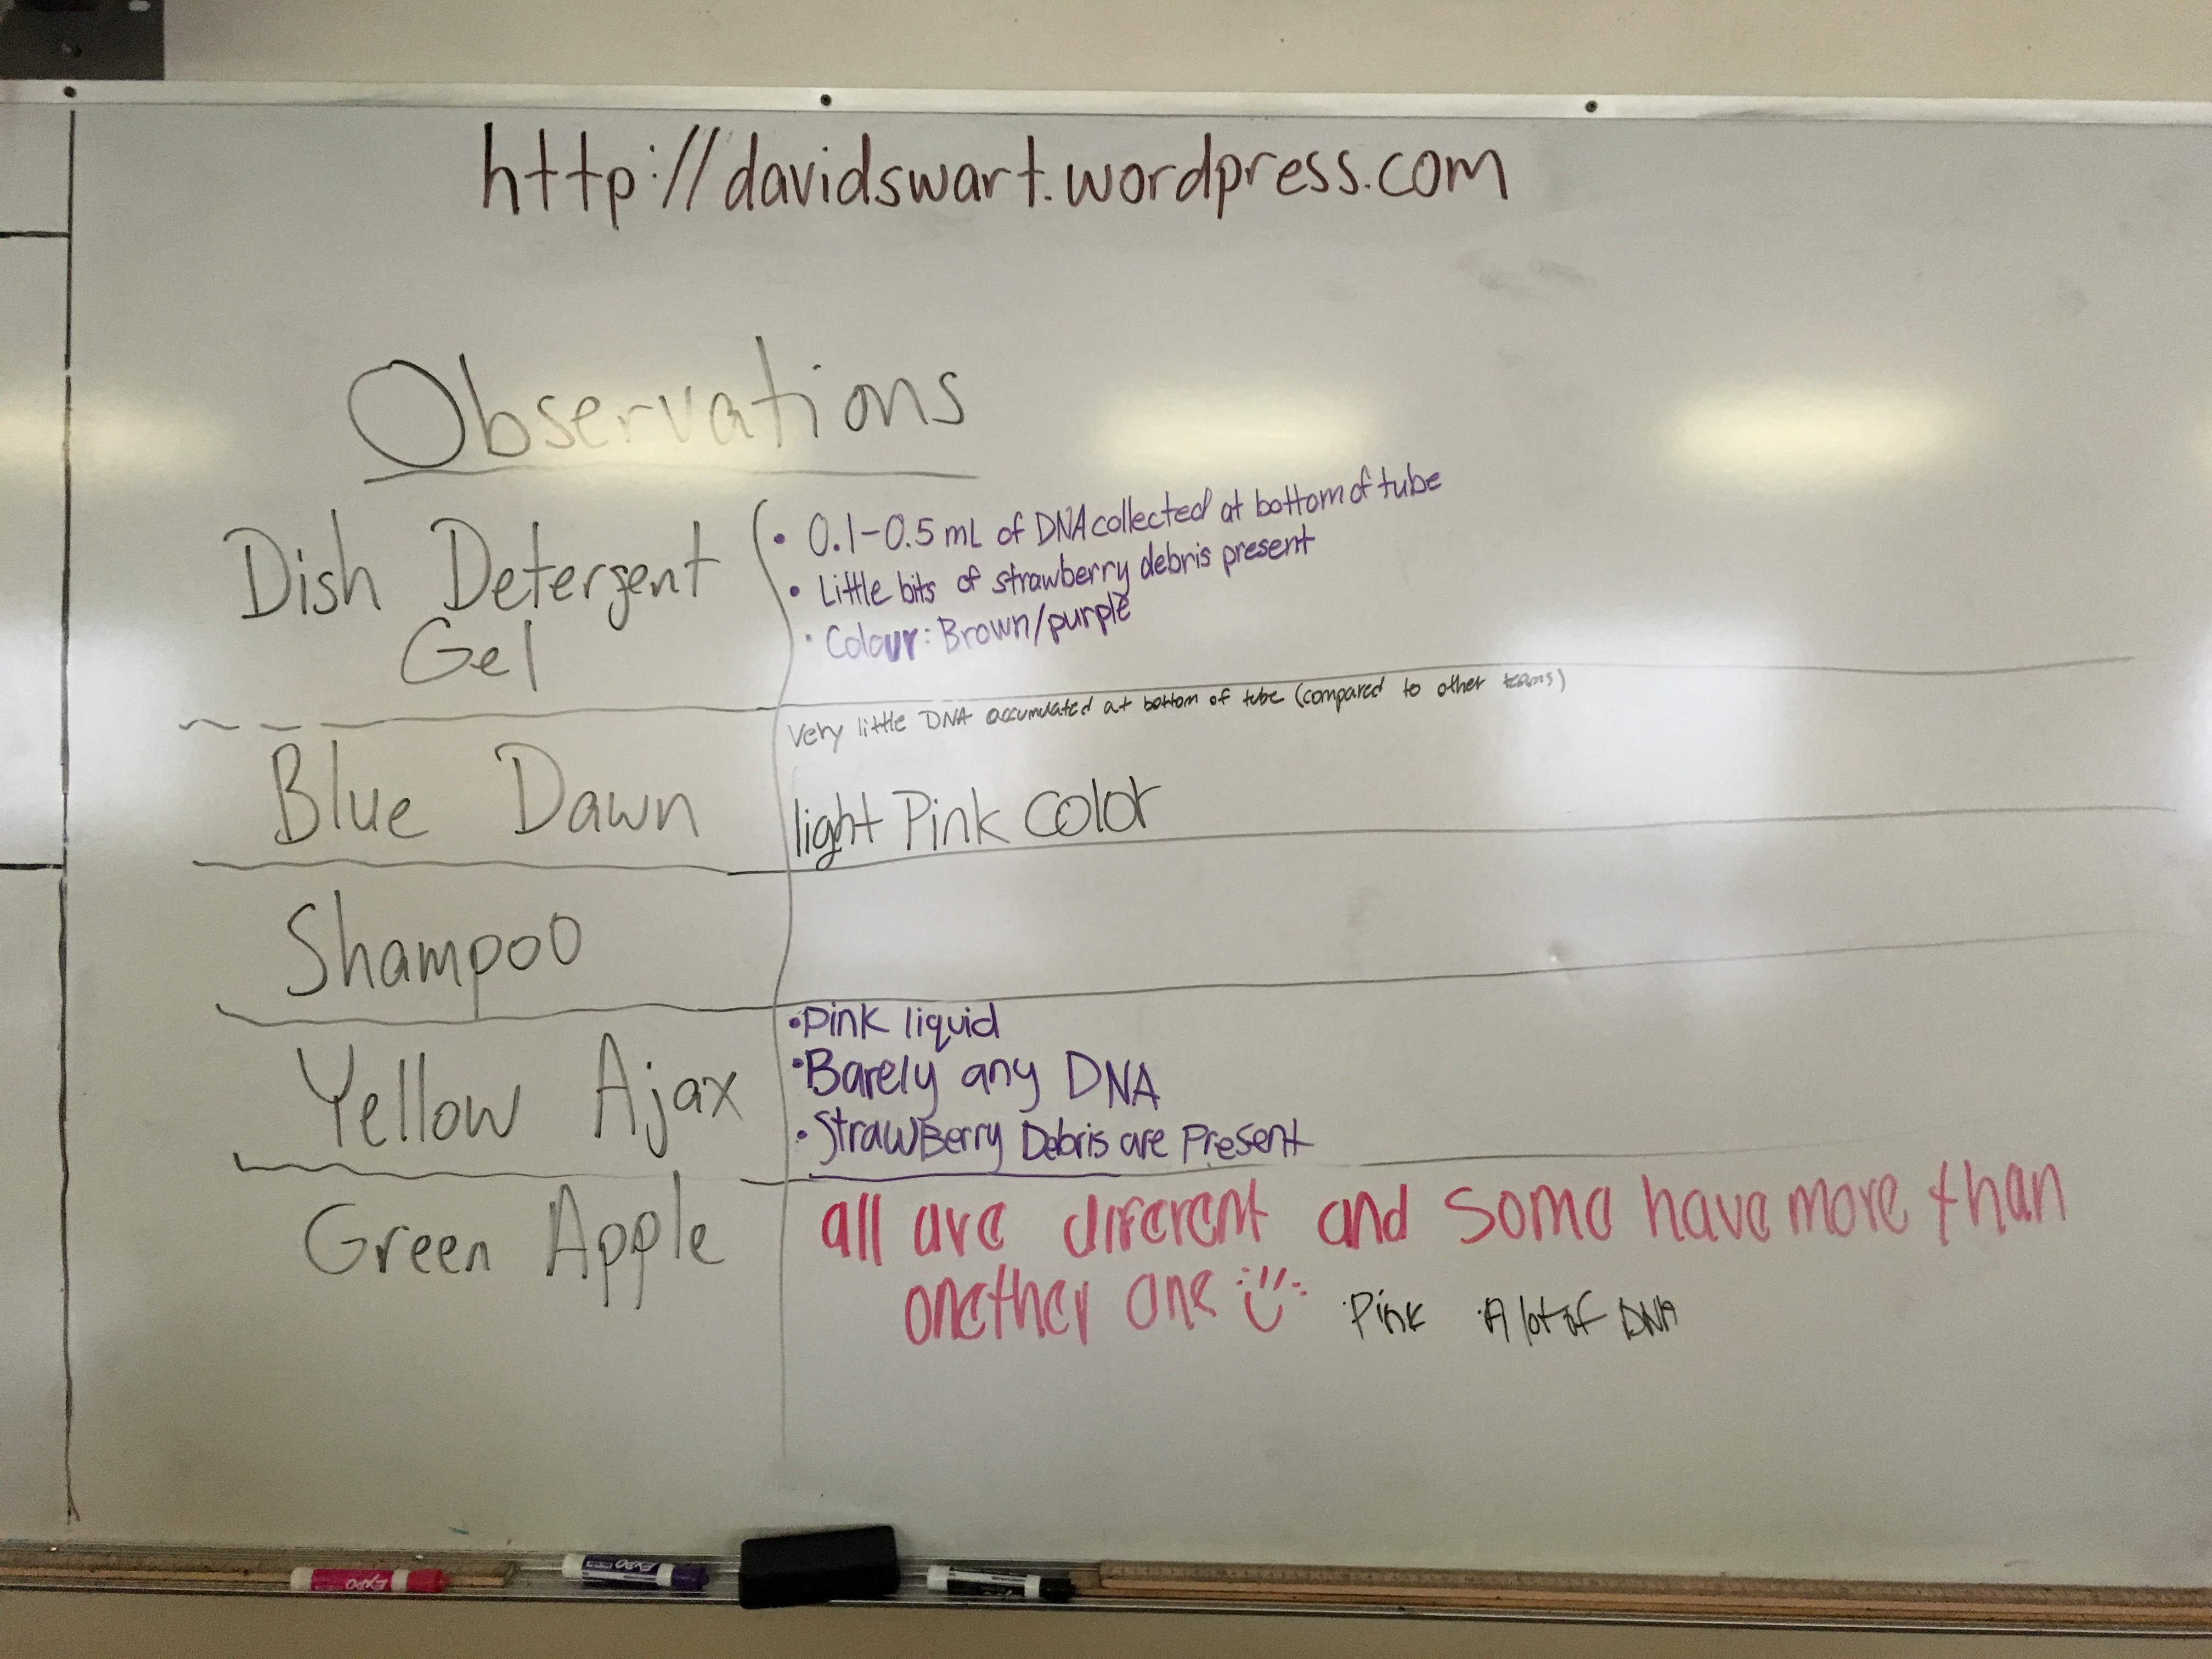 http://davidswart.wordpress.com
Observations
Dish Detergent
Gel
• 0.1-0.5 mL of DNA collected at bottom of tube
• Little bits of strawberry debris present
• Colour: Brown/purple
Blue Dawn
Very little DNA accumulated at bottom of tube (compared to other teams)
light Pink color
Shampoo
Yellow Ajax
• Pink liquid
• Barely any DNA
• StrawBerry Debris are Present
Green Apple
all are diferent and some have more than
onether one
• Pink • A lot of DNA
EXPO
EXPO